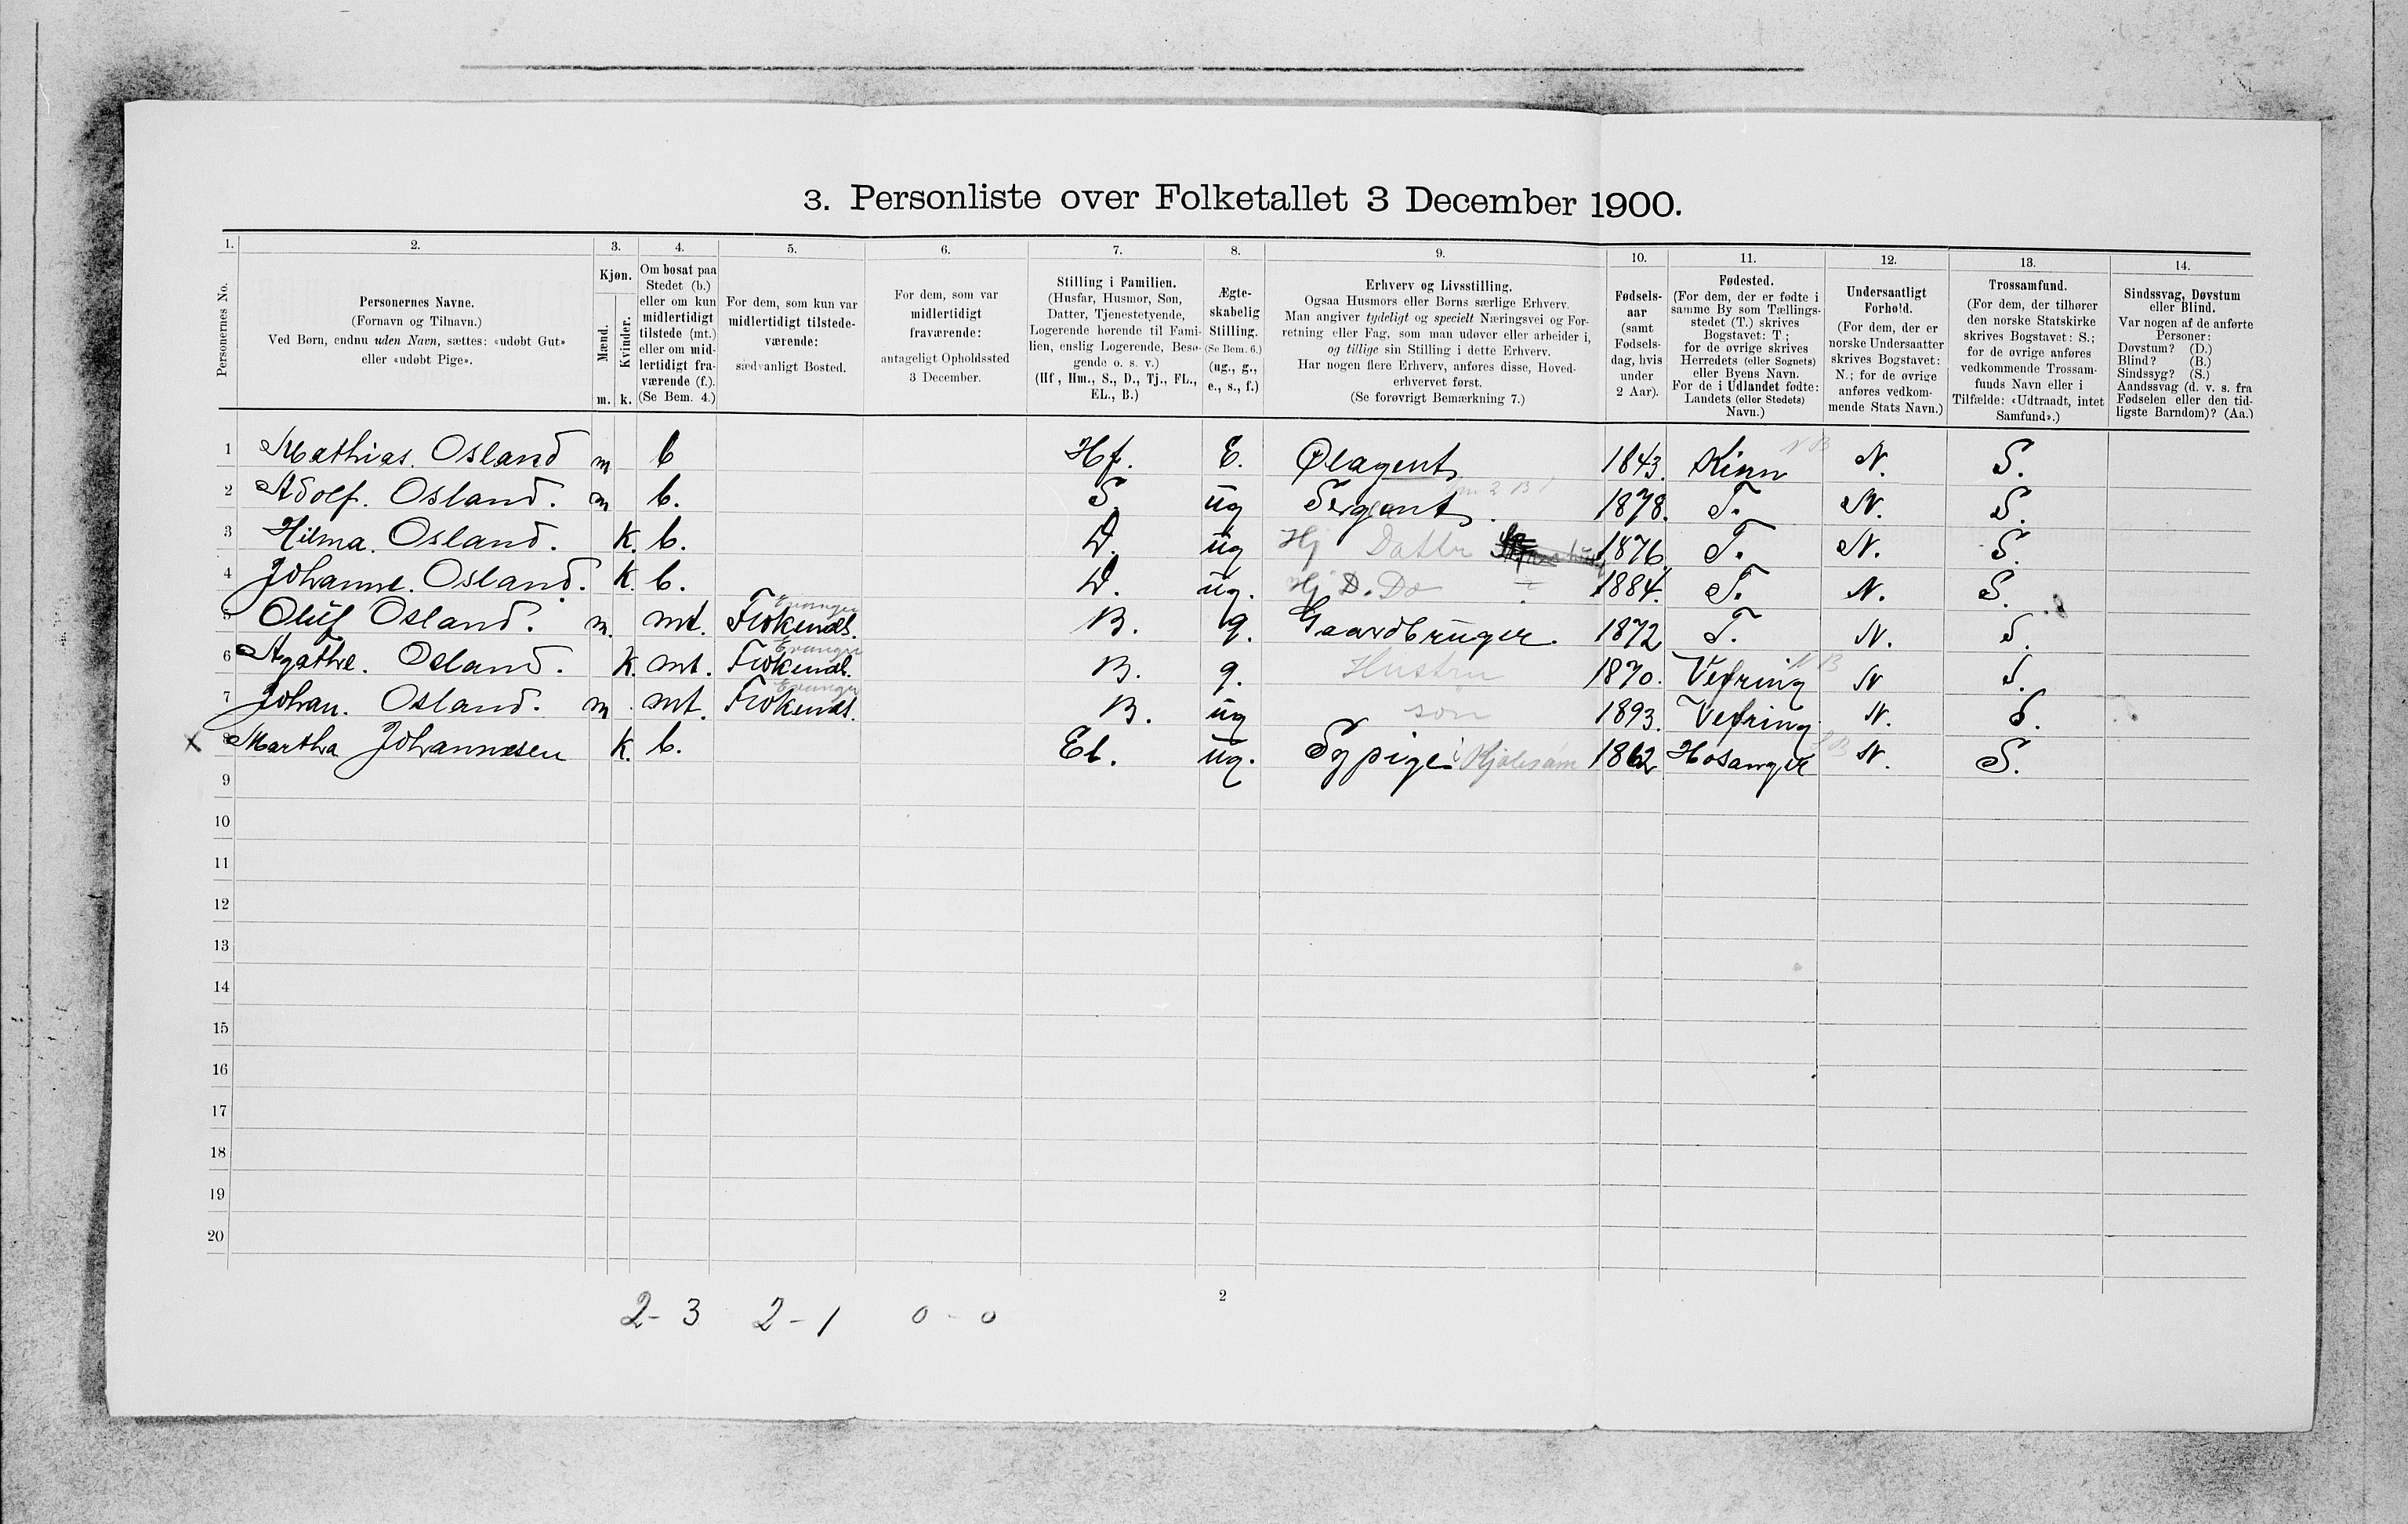 3. Personliste over Folketallet 3 December 1900.
1. 2. 3. 4. 5. 6. 7. 8. 9. 10. 11. 12. 13. 14.
Personernes No.
Personernes Navne.
(Fornavn og Tilnavn.)
Ved Børn, endnu uden Navn, sættes: «udøbt Gut»
eller «udøbt Pige».
Kjøn.
Mænd.
Kvinder.
m. k.
Om bosat paa
Stedet (b.)
eller om kun
midlertidigt
tilstede (mt.)
eller om mid-
lertidigt fra-
værende (f.).
(Se Bem. 4.)
For dem, som kun var
midlertidigt tilstede-
værende:
sædvanligt Bosted.
For dem, som var
midlertidigt
fraværende:
antageligt Opholdssted
3 December.
Stilling i Familien.
(Husfar, Husmor, Søn,
Datter, Tjenestetyende,
Logerende hørende til Fami-
lien, enslig Logerende, Besø-
gende o. s. v.)
(Hf, Hm., S., D., Tj., FL.,
EL., B.)
Ægte-
skabelig
Stilling.
(Se Bem. 6.)
(ug., g.,
e., s., f.)
Erhverv og Livsstilling.
Ogsaa Husmors eller Børns særlige Erhverv.
Man angiver tydeligt og specielt Næringsvei og For-
retning eller Fag, som man udøver eller arbeider i,
og tillige sin Stilling i dette Erhverv.
Har nogen flere Erhverv, anføres disse, Hoved-
erhvervet først.
(Se forøvrigt Bemærkning 7.)
Fødsels-
aar
(samt
Fødsels-
dag, hvis
under
2 Aar).
Fødested.
(For dem, der er fødte i
samme By som Tællings-
stedet (T.) skrives
Bogstavet: T;
for de øvrige skrives
Herredets (eller Sognets)
eller Byens Navn.
For de i Udlandet fødte:
Landets (eller Stedets)
Navn.)
Undersaatligt
Forhold.
(For dem, der er
norske Undersaatter
skrives Bogstavet:
N.; for de øvrige
anføres vedkom-
mende Stats Navn.)
Trossamfund.
(For dem, der tilhører
den norske Statskirke
skrives Bogstavet: S.;
for de øvrige anføres
vedkommende Trossam-
funds Navn eller i
Tilfælde: «Udtraadt, intet
Samfund».)
Sindssvag, Døvstum
eller Blind.
Var nogen af de anførte
Personer:
Døvstum? (D.)
Blind? (B.)
Sindssyg? (S.)
Aandssvag (d. v. s. fra
Fødselen eller den tid-
ligste Barndom)? (Aa.)
1 Mathias. Osland m b Hf. E. Ølagent 1843. Kinn N B N. S.
2 Adolf. Osland. m b. S. ug Sergent. 1878. T. N. S.
3 Hilma. Osland. K. b. D. ug Hj Datter 1876 T. N. S.
4 Johanne. Osland. K. b. D. ug. Hj D. Do 1884. T. N. S.
5 Oluf Osland. m. mt. Evanger B. g. Gaardbruger. 1872 T. N. S.
6 Agathe. Osland. K. mt. Evanger B. g. Hustru 1870. Vefring N B N S.
7 Johan. Osland. m mt. Evanger B. ug søn 1893. Vefring N. S.
x 8 Martha Johannesen K. b. El. ug. Sypige i Kjolesøm 1862 Hosanger S B N. S.
9
10
11
12
13
14
15
16
17
18
19
20
2
2 - 3 2 - 1 0 - 0